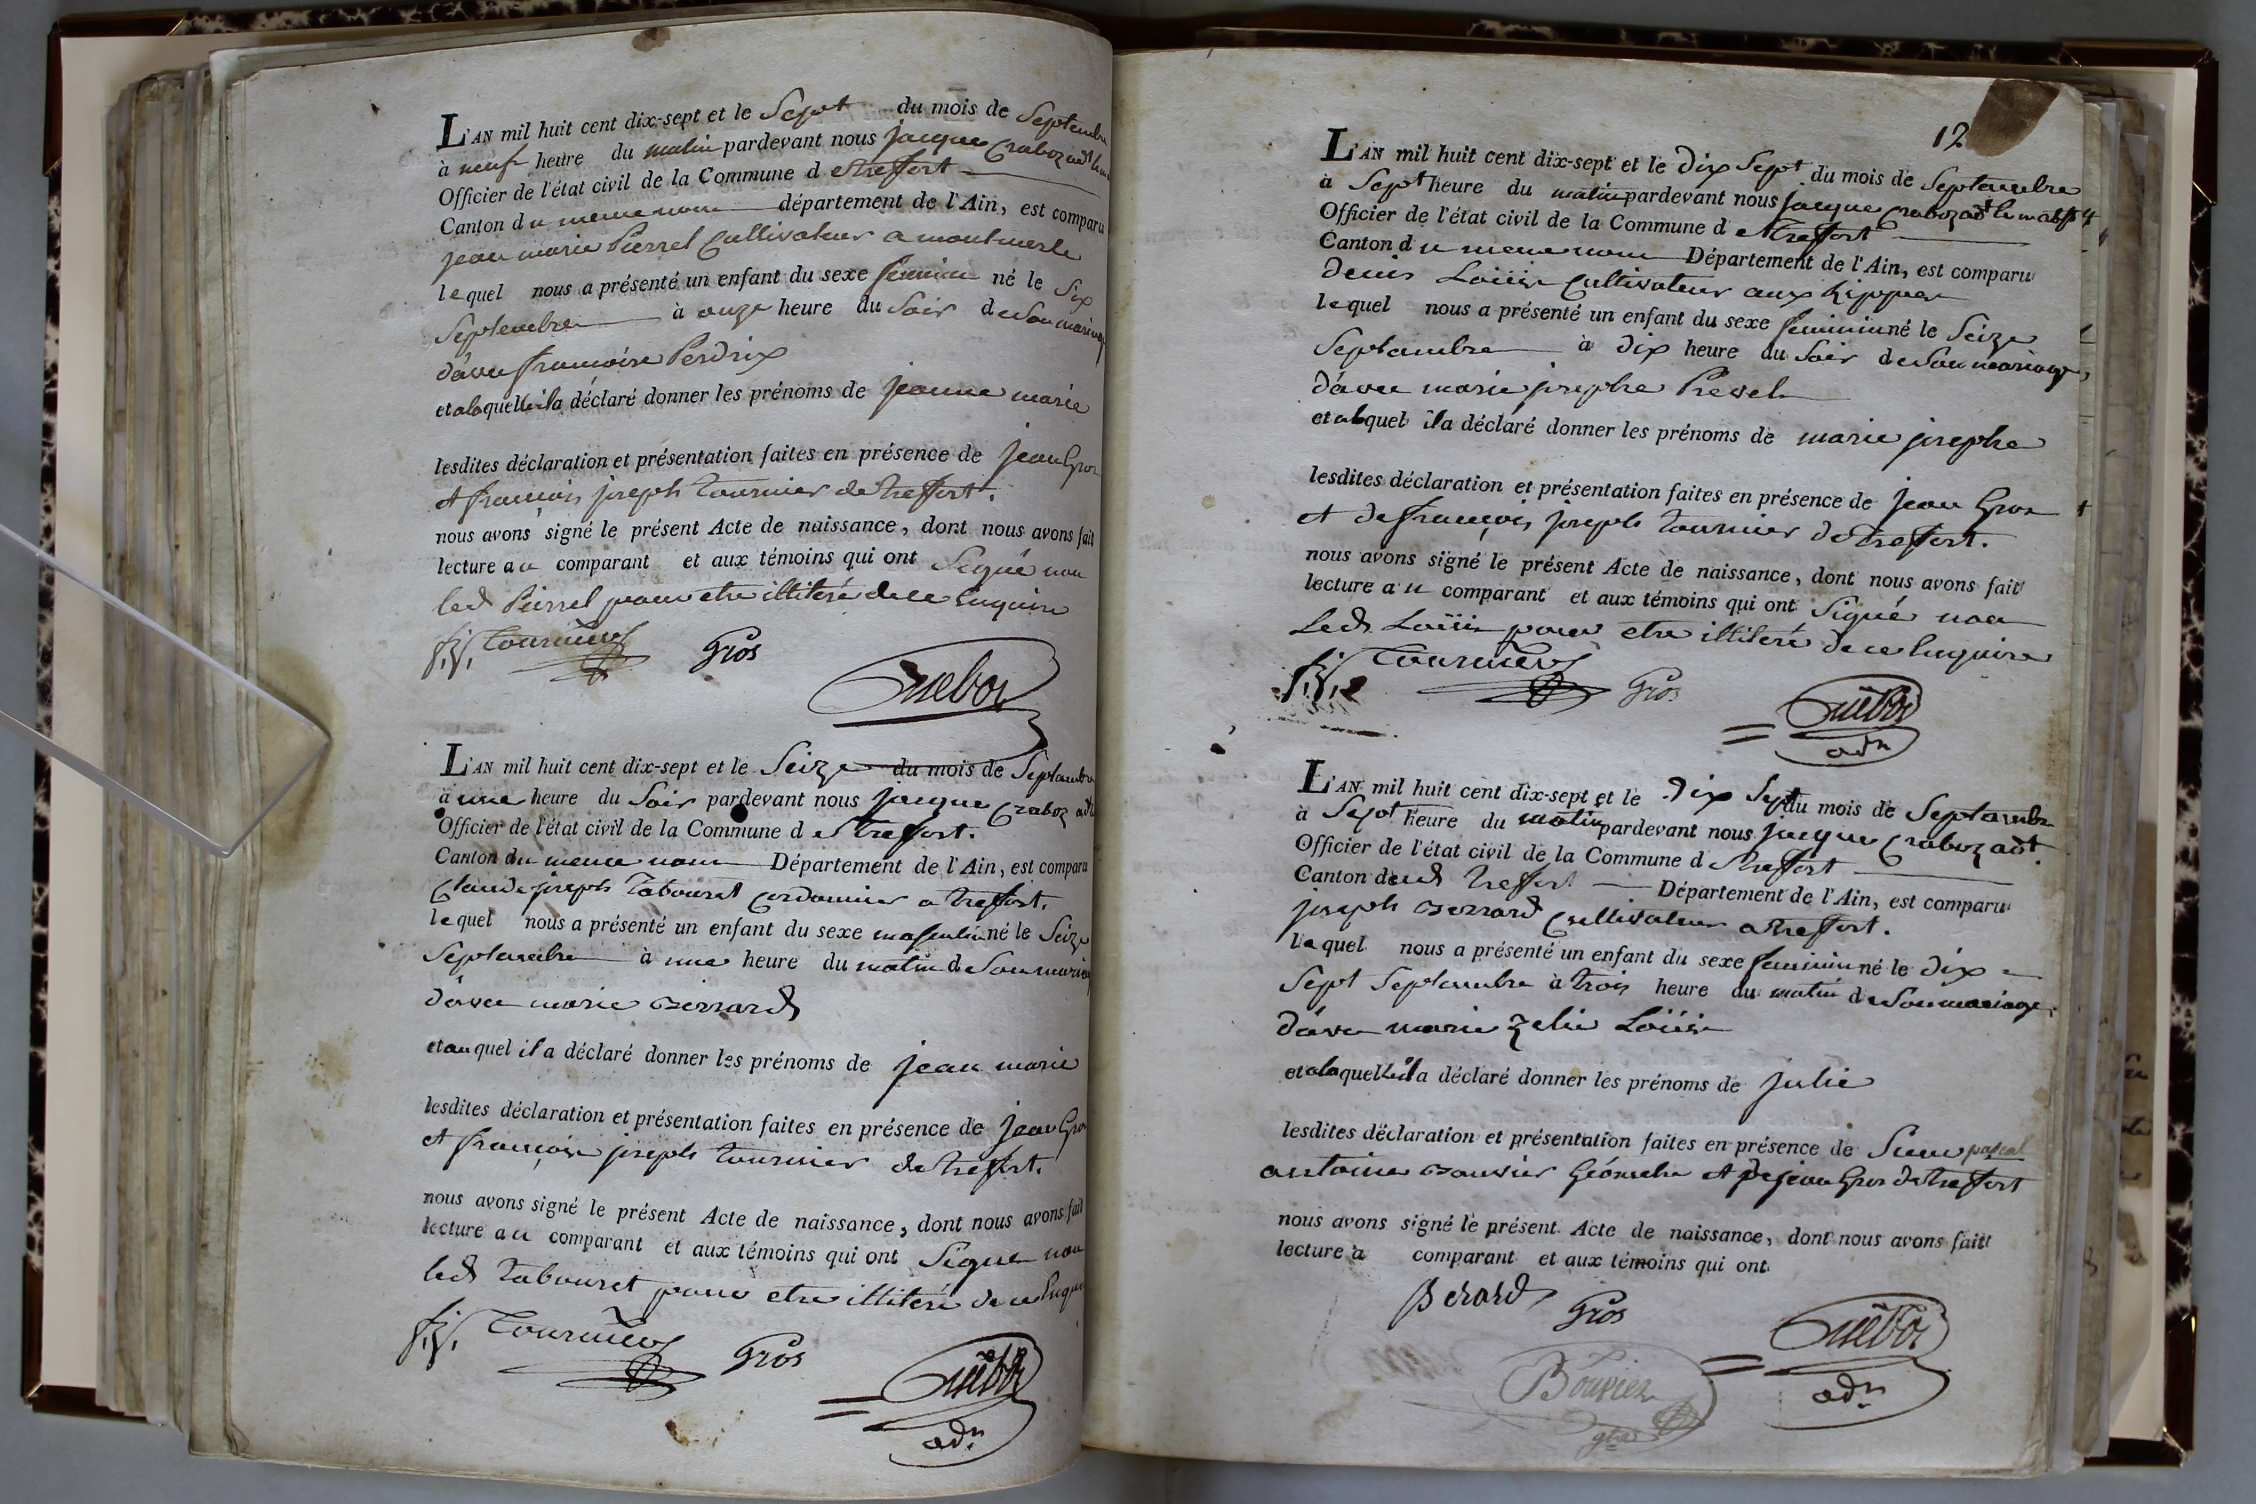 L'AN mil huit cent dix-sept et le Sept du mois de Septembre
à neuf heure du matin pardevant nous jacque Craboz adt
Officier de l'état civil de la Commune d etreffort
Canton du meme nom département de l'Ain, est comparu
jean marie Pierrel Cultivateur a montmerle
lequel nous a présenté un enfant du sexe feminin né le Six
Septembre à onze heure du Soir de Son mariage
d'avec francoise Perdrix
et alaquelle il a déclaré donner les prénoms de jeanne marie
lesdites déclaration et présentation faites en présence de jean Gros
et francois joseph tournier de treffort.
nous avons signé le présent Acte de naissance, dont nous avons fait
lecture au comparant et aux témoins qui ont Signé non
led Pierrel pour etre illiteré de ce Enquire
f. j. Tournier Gros
L'AN mil huit cent dix-sept et le Seize du mois de Septembre
à une heure du Soir pardevant nous jacque Craboz adt
Officier de l'état civil de la Commune d etreffort.
Canton du meme nom Département de l'Ain, est comparu
Claude joseph tabouret Cordonnier a treffort.
lequel nous a présenté un enfant du sexe masculin né le Seize
Septembre à une heure du matin de Son mariage
d'avec marie berrard
et auquel il a déclaré donner les prénoms de jean marie
lesdites déclaration et présentation faites en présence de jean Gros
et francois joseph tournier de treffort.
nous avons signé le présent Acte de naissance, dont nous avons fait
lecture au comparant et aux témoins qui ont Signé non
led tabouret pour etre illiteré de ce Enquire
f. j. Tournier Gros
adn
12
L'AN mil huit cent dix-sept et le dix Sept du mois de Septembre
à Sept heure du matin pardevant nous jacque Craboz adt
Officier de l'état civil de la Commune d etreffort
Canton du meme nom Département de l'Ain, est comparu
denis Loüis Cultivateur aux
lequel nous a présenté un enfant du sexe feminin né le Seize
Septembre à dix heure du Soir de Son mariage
d'avec marie josephe Prevel
et alaquel il a déclaré donner les prénoms de marie josephe
lesdites déclaration et présentation faites en présence de jean Gros
et de francois joseph tournier de treffort.
nous avons signé le présent Acte de naissance, dont nous avons fait
lecture au comparant et aux témoins qui ont Signé non
Led Loüis pour etre illiteré de ce Enquire
f. j. Tournier Gros
adn
L'AN mil huit cent dix-sept et le dix Sept du mois de Septembre
à Sept heure du matin pardevant nous jacque Craboz adt.
Officier de l'état civil de la Commune d etreffort
Canton dud treffort Département de l'Ain, est comparu
joseph berrard Cultivateur a treffort.
lequel nous a présenté un enfant du sexe feminin né le dix
Sept Septembre à trois heure du matin de Son mariage
d'avec marie zelie Loüis
et alaquelle il a déclaré donner les prénoms de julie
lesdites déclaration et présentation faites en présence de Sieur pascal
antoine bouvier Géometre et de jean Gros de treffort
nous avons signé le présent Acte de naissance, dont nous avons fait
lecture à comparant et aux témoins qui ont
Berard Gros
Bouvier
adn